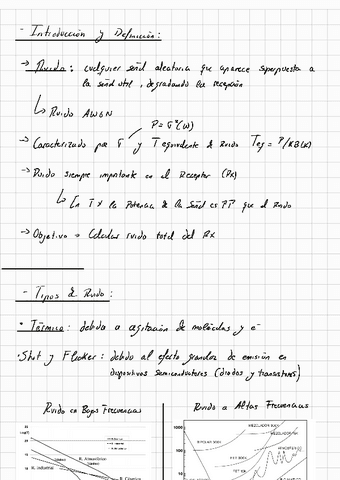 - Introducción y Definición:
→ Ruido: cualquier señal aleatoria que aparece superpuesta a
la señal util, degradando la recepción
↳ Ruido AWGN
P = σ²(W)
→ Caracterizado por σ y T equivalente de Ruido Teq = P/KB(K)
→ Ruido siempre importante en el Receptor (Rx)
↳ En Tx la Potencia de la Señal es ↑↑ que el Ruido
→ Objetivo = Calcular ruido total del Rx
- Tipos de Ruido:
• Térmico: debida a agitación de moléculas y e⁻
• Shot y Flicker: debido al efecto granular de emisión en
dispositivos semiconductores (diodos y transistores)
Ruido en Bajas Frecuencias
Ruido a Altas Frecuencias
1000
100
10